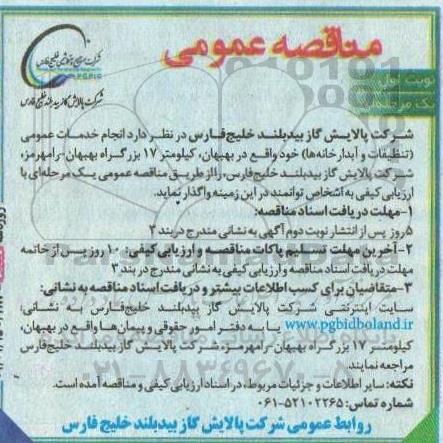 مناقصه عمومی
شرکت صنایع پتروشیمی خلیج فارس
PGPIC
شرکت پالایش گاز بیدبلند خلیج فارس
نوبت اول
یک مرحله‌ای
شرکت پالایش گاز بیدبلند خلیج‌فارس در نظر دارد انجام خدمات عمومی
(تنظیفات و آبدارخانه‌ها) خود واقع در بهبهان، کیلومتر ۱۷ بزرگراه بهبهان-رامهرمز،
شرکت پالایش گاز بیدبلند خلیج‌فارس، را از طریق مناقصه عمومی یک مرحله‌ای با
ارزیابی کیفی به اشخاص توانمند در این زمینه واگذار نماید.
۱-مهلت دریافت اسناد مناقصه:
۵روز پس از انتشار نوبت دوم آگهی به نشانی مندرج در بند ۳
۲-آخرین مهلت تسلیم پاکات مناقصه و ارزیابی کیفی: ۱۰ روز پس از خاتمه
مهلت دریافت اسناد مناقصه و ارزیابی کیفی به نشانی مندرج در بند ۳
۳-متقاضیان برای کسب اطلاعات بیشتر و دریافت اسناد مناقصه به نشانی:
سایت اینترنتی شرکت پالایش گاز بیدبلند خلیج‌فارس به نشانی:
www.pgbidboland.ir یا به دفتر امور حقوقی و پیمان‌ها واقع در بهبهان،
کیلومتر ۱۷ بزرگراه بهبهان-رامهرمز، شرکت پالایش گاز بیدبلند خلیج‌فارس
مراجعه نمایند.
نکته: سایر اطلاعات و جزئیات مربوط، در اسناد ارزیابی کیفی و مناقصه آمده است.
شماره تماس: ۵۲۱۰۲۲۶۵-۰۶۱
روابط عمومی شرکت پالایش گاز بیدبلند خلیج فارس
۰۲۱-۸۸۳۴۹۶۷۰